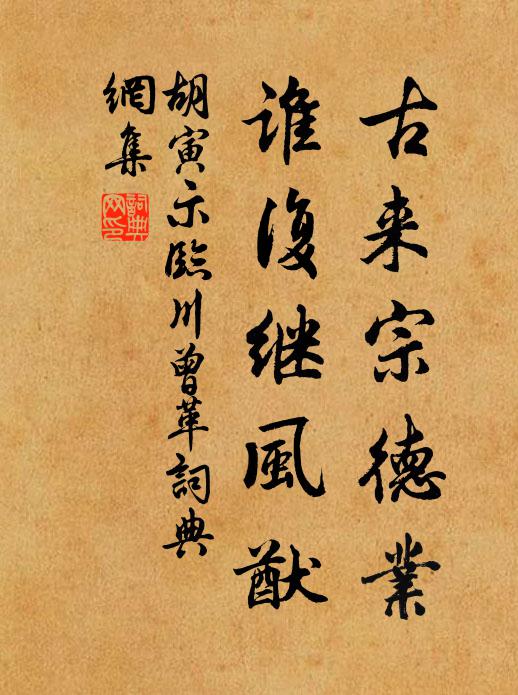 古来宗德業
谁復继風猷
胡寅示臨川曾革詞典
網集
詞典
网印